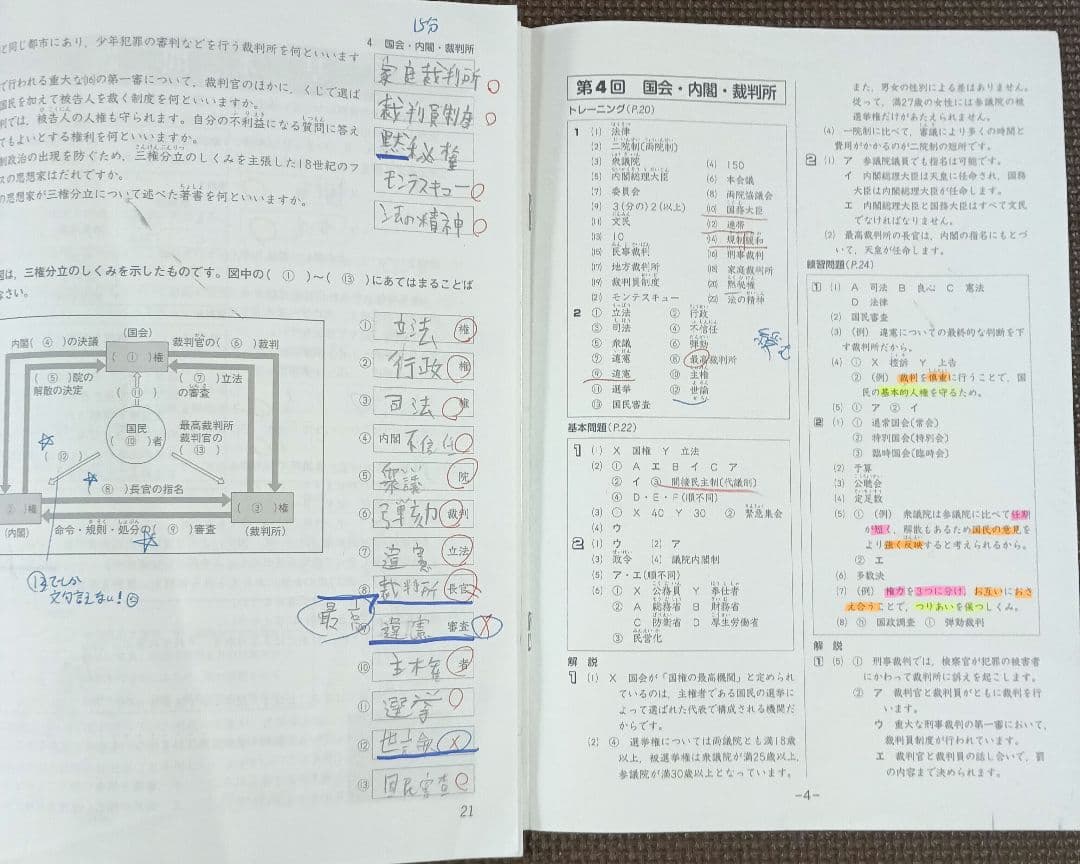 15分
4 国会・内閣・裁判所
と同じ都市にあり,少年犯罪の審判などを行う裁判所を何といいます
家庭裁判所
で行われる重大な⒃の第一審について,裁判官のほかに,くじで選ば
国民を加えて被告人を裁く制度を何といいますか。
裁判員制度
判では,被告人の人権も守られます。自分の不利益になる質問に答え
てもよいとする権利を何といいますか。
黙秘権
制政治の出現を防ぐため,三権分立のしくみを主張した18世紀のフ
スの思想家はだれですか。
モンテスキュー
の思想家が三権分立について述べた著書を何といいますか。
法の精神
図は,三権分立のしくみを示したものです。図中の( ① )~( ⑬ )にあてはまることば
なさい。
(国会)
内閣( ④ )の決議
( ① )権
裁判官の( ⑥ )裁判
( ⑤ )院の
解散の決定
( ⑦ )立法
の審査
( ⑪ )
国民
( ⑩ )者
最高裁判所
裁判官の
( ⑬ )
( ⑫ )
( ⑧ )長官の指名
② )権
( ③ )権
(内閣)
命令・規則・処分の( ⑨ )審査
(裁判所)
① 立法 権
② 行政 権
③ 司法 権
④ 内閣 不信任
⑤ 衆議 院
⑥ 弾劾 裁判
⑦ 違憲 立法
⑧ 裁判所 長官
最高
違憲 審査
⑩ 主権 者
⑪ 選挙
⑫ 世論
⑬ 国民審査
21
第4回 国会・内閣・裁判所
トレーニング(P.20)
1 ⑴ 法律
⑵ 二院制(両院制)
⑶ 衆議院 ⑷ 150
⑸ 内閣総理大臣 ⑹ 本会議
⑺ 委員会 ⑻ 両院協議会
⑼ 3(分の)2(以上) ⑽ 国務大臣
⑾ 文民 ⑿ 連帯
⒀ 10 ⒁ 規制緩和
⒂ 民事裁判 ⒃ 刑事裁判
⒄ 地方裁判所 ⒅ 家庭裁判所
⒆ 裁判員制度 ⒇ 黙秘権
(21) モンテスキュー (22) 法の精神
2 ① 立法 ② 行政
③ 司法 ④ 不信任
⑤ 衆議 ⑥ 弾劾
⑦ 違憲 ⑧ 最高裁判所
⑨ 違憲 ⑩ 主権
⑪ 選挙 ⑫ 世論
⑬ 国民審査
基本問題(P.22)
1 ⑴ X 国権 Y 立法
⑵ ① A エ B イ C ア
② イ ③ 間接民主制(代議制)
④ D・E・F(順不同)
⑶ ① X 40 Y 30 ② 緊急集会
⑷ ウ
2 ⑴ ウ ⑵ ア
⑶ 政令 ⑷ 議院内閣制
⑸ ア・エ(順不同)
⑹ ① X 公務員 Y 奉仕者
② A 総務省 B 財務省
C 防衛省 D 厚生労働省
③ 民営化
解 説
1 ⑴ X 国会が「国権の最高機関」と定められ
ているのは,主権者である国民の選挙に
よって選ばれた代表で構成される機関だ
からです。
⑵ ④ 選挙権については両議院とも満18歳
以上,被選挙権は衆議院が満25歳以上,
参議院が満30歳以上となっています。
また,男女の性別による差はありません。
従って,満27歳の女性には参議院の被
選挙権だけがあたえられません。
⑷ 一院制に比べて,審議により多くの時間と
費用がかかるのが二院制の短所です。
2 ⑴ ア 参議院議員でも指名は可能です。
イ 内閣総理大臣は天皇に任命され,国務
大臣は内閣総理大臣が任命します。
エ 内閣総理大臣と国務大臣はすべて文民
でなければなりません。
⑵ 最高裁判所の長官は,内閣の指名にもとづ
いて,天皇が任命します。
練習問題(P.24)
1 ⑴ A 司法 B 良心 C 憲法
D 法律
⑵ 国民審査
⑶ (例) 違憲についての最終的な判断を下
す裁判所だから。
⑷ ① X 控訴 Y 上告
② (例) 裁判を慎重に行うことで,国
民の基本的人権を守るため。
⑸ ① ア ② イ
2 ⑴ ① 通常国会(常会)
② 特別国会(特別会)
③ 臨時国会(臨時会)
⑵ 予算
⑶ 公聴会
⑷ 定足数
⑸ ① (例) 衆議院は参議院に比べて任期
が短く,解散もあるため国民の意見を
より強く反映すると考えられるから。
② エ
⑹ 多数決
⑺ (例) 権力を3つに分け,お互いにおさ
え合うことで,つりあいを保つしくみ。
⑻ ⓗ 国政調査 ⓘ 弾劾裁判
解 説
1 ⑸ ① 刑事裁判では,検察官が犯罪の被害者
にかわって裁判所に訴えを起こします。
② ア 裁判官と裁判員がともに裁判を行
います。
ウ 重大な刑事裁判の第一審において,
裁判員制度が行われています。
エ 裁判官と裁判員の話し合いで,罰
の内容まで決められます。
-4-